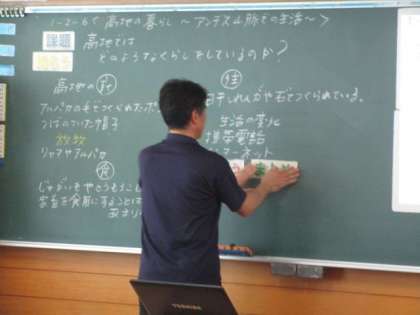 1-2-6 高地の暮らし ~アンデス山脈での生活~
課題
高地では
どのようなくらしをしているのか?
高地の衣
アルパカの毛でつくられたポ
つばのついた帽子
放牧
リャマやアルパカ
食
じゃがいもやとうもろこし
家畜を食用にすることは
あまり
住
日干しれんがや石でつくられている。
生活の変化
携帯電話
ターネット
TOSHIBA